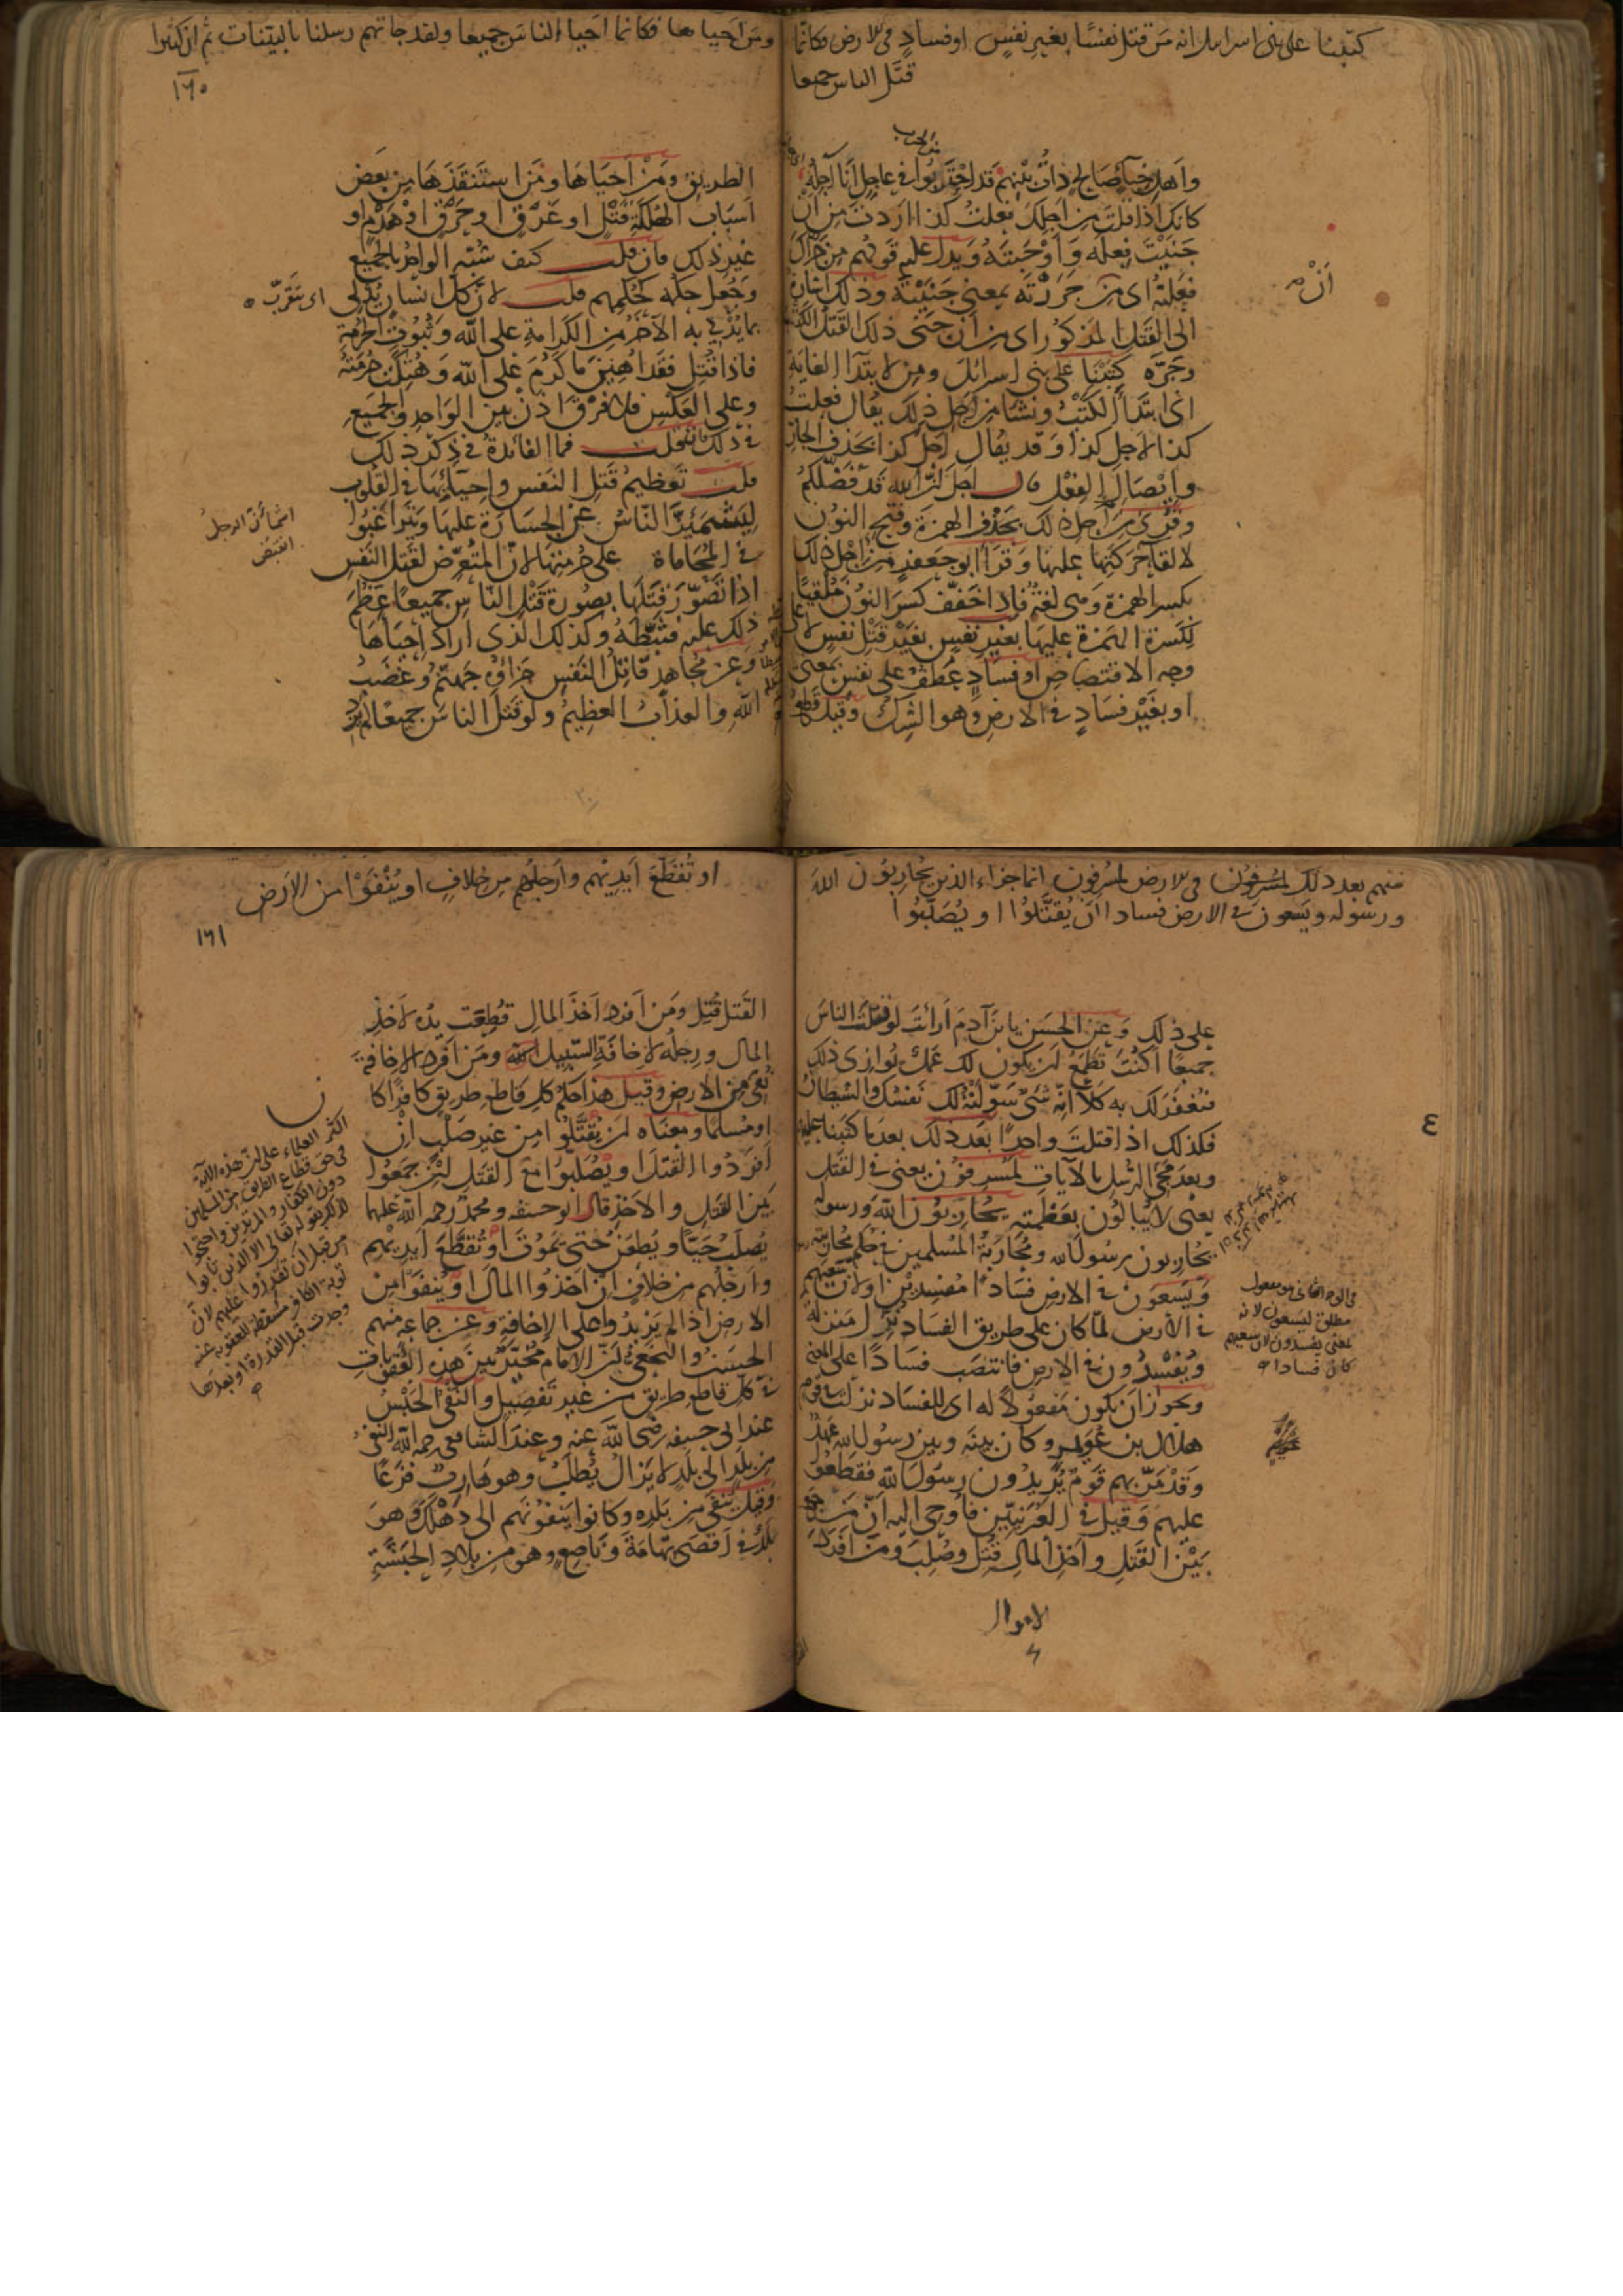 كتبنا على بنى اسرايل انه من قتل نفسًا بغير نفسٍ او فسادٍ فى الارض فكانما
قتَل الناس جميعا
وأهل خباءٍ صالحٍ ذاتُ بينهم قد احتربوا في عاجلٍ أنا آجله
كانك اذا قلت من اجلك فعلت كذا اردت من أن
جنيت فعله وأوجبته ويدل عليه قولهم من جرّاك
فعلته اى من جررته بمعنى جنيته وذلك اشارة
الى القتل المذكور اى من ان جنى ذلك القتل الكتب
وجرّه كتبنا على بنى اسرائل ومن لابتدآ الغاية
اى ابتدأ الكتب ونشا من اجل ذلك يقال فعلت
كذا لاجل كذا وقد يقال اجل كذا بحذف الجار
وايصال الفعل قال اجل انّ الله قد فضّلكم
وقرئ من اجل ذلك بحذف الهمزة وفتح النون
لالقآ حركتها عليها وقرا ابو جعفر من اجل ذلك
بكسر الهمزة وهى لغة فاذا خفّف كسر النون ملقيًا
لكسرة الهمزة عليها بغير نفس بغير قتل نفس لا على
وجه الاقتصاص او فسادٍ عطف على نفس بمعنى
او بغير فسادٍ فى الارض وهو الشرك وقيل قطع
أنْ
ومن احياها فكانما احيا الناس جميعا ولقد جاتهم رسلنا بالبيّنات ثم ان كثيرا
١٦٠
الطريق ومن احياها ومن استنقذها من بعض
اسباب الهلكة قتلٍ او غرقٍ او حرقٍ او هدمٍ او
غير ذلك فان قلت كيف شبّه الواحد بالجميع
وجُعل حكمه كحكمهم قلت لان كل انسان يُدلى
بما يُدلى به الآخر من الكرامة على الله وثبوت الحرمة
فاذا قُتل فقد اُهين ما كرُم على الله وهُتكت حرمته
وعلى العكس فلا فرق اذن بين الواحد والجميع
فى ذلك فان قلت فما الفائدة فى ذكر ذلك
قلت تعظيم قتل النفس واحيآئها فى القلوب
ليشمئزّ الناس عن الجسارة عليها ويتراغبوا
فى المحاماة على حرمتها لان المتعرّض لقتل النفس
اذا تصوّر قتلها بصورة قتل الناس جميعًا عظم
ذلك عليه فثبّطه وكذلك الذى اراد احياها
وعن مجاهد قاتل النفس جزاؤه جهنم وغضب
الله والعذاب العظيم ولو قتل الناس جميعًا لم يزد
اى يتقرّب
اشمأزّ الرجل
انقبض
منهم بعد ذلك لمسرفون فى الارض لمسرفون انما جزاء الذين يحاربون الله
ورسوله ويسعون فى الارض فسادا ان يُقتّلوا او يُصلّبوا
على ذلك وعن الحسن يا بن آدم أرأيت لو قتلت الناس
جميعًا اكنت تطمع ان يكون لك عمل يوازى ذلك
فيُغفر لك به كلّا انّه شئ سوّلته لك نفسك والشيطان
فكذلك اذا قتلت واحدًا بعد ذلك بعد ما كتبنا عليهم
وبعد مجئ الرسل بالآيات لمسرفون يعنى فى القتل
يعنى لا يبالون بعظمته يحاربون الله ورسوله
يحاربون رسول الله ومحاربة المسلمين فى حكم محاربته
ويسعون فى الارض فسادًا مفسدين او لان سعيهم
فى الارض لمّا كان على طريق الفساد نُزّل منزلة
ويُفسدون فى الارض فانتصب فسادًا على المعنى
ويجوز ان يكون مفعولًا له اى للفساد نزلت فى قوم
هلال بن عُويمر وكان بينه وبين رسول الله عهدٌ
وقد مَرّ بهم قوم يُريدون رسول الله فقطعوا
عليهم وقيل فى العرنيّين فاوحى اليه انّ من جمع
بين القتل واخذ المال قُتل وصُلب ومن افرد
٤
فى الوجه الثانى هو مفعول
مطلق ليسعون لانه
بمعنى يفسدون لان سعيهم
كان فسادا
او تُقطّع ايديهم وارجلهم من خلافٍ او يُنفَوْا من الارض
١٦١
القتل قُتل ومن افرد اخذ المال قُطعت يدُه لاخذ
المال ورجلُه لاخافة السّبيل ومن افرد الاخافة
نُفى من الارض وقيل هذا حكم كل قاطع طريق كافرًا كان
او مُسلمًا ومعناه ان يُقتّلوا من غير صلب ان
افردوا القتل او يُصلّبوا مع القتل ان جمعوا
بين القتل والاخذ قال ابو حنيفه ومحمّد رحمه الله عليهما
يُصلب حيًّا ويُطعن حتى يموت او تُقطّع ايديهم
وارجلهم من خلافٍ ان اخذوا المال او يُنفوا من
الارض اذا لم يزيدوا على الاخافة وعن جماعه منهم
الحسن والنخعى انّ الامام مخيّر بين هذه العقوبات
فى كل قاطع طريق من غير تفصيل والنّفى الحبس
عند ابى حنيفه رضى الله عنه وعند الشافعى رحمه الله النّفى
من بلدٍ الى بلدٍ لا يزال يُطلب وهو هاربٌ فزعًا
وقيل يُنفى من بلده وكانوا ينفونهم الى دهلك وهو
بلدٌ فى اقصى تهامة وناصع وهو من بلاد الحبشة
اكثر العلماء على ان هذه الآية
فى حق قطاع الطريق من المسلمين
دون الكفار والمرتدين واحتجوا
بقوله تعالى الا الذين تابوا
من قبل ان تقدروا عليهم لان
توبة الكافر مسقطة للعقوبة عنه
وجدت قبل القدرة او بعدها